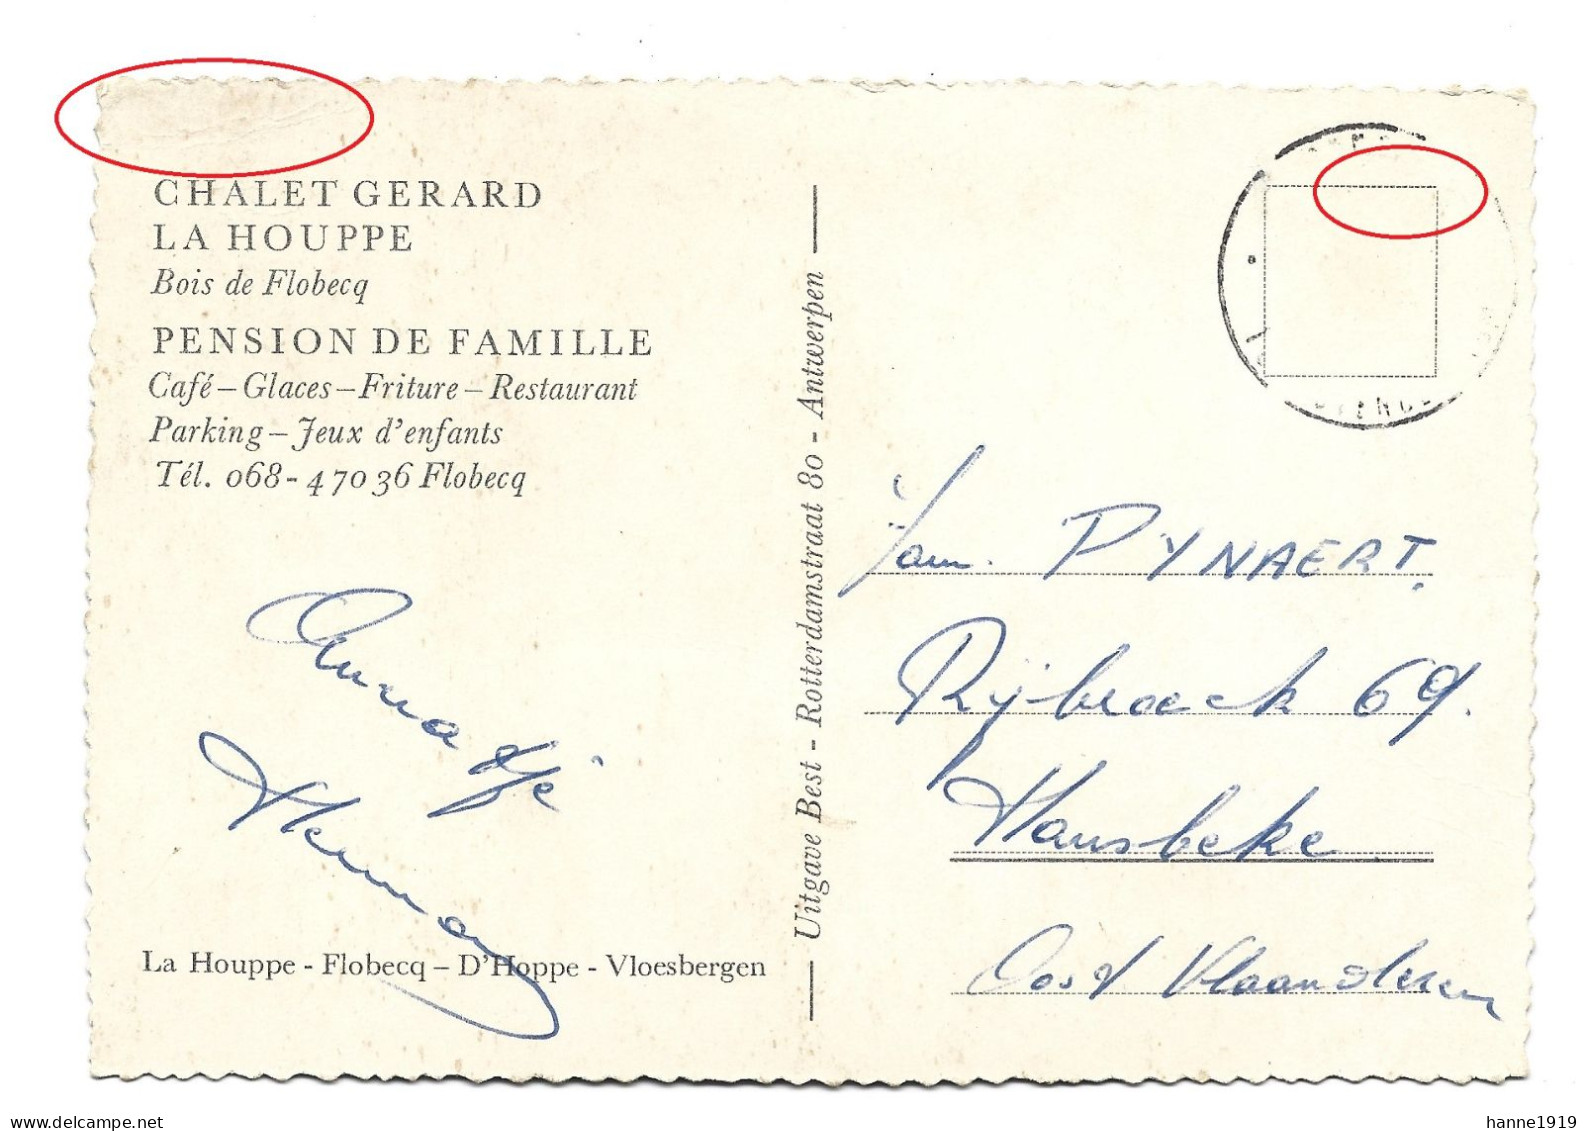 CHALET GERARD
LA HOUPPE
Bois de Flobecq
PENSION DE FAMILLE
Café – Glaces – Friture – Restaurant
Parking – Jeux d'enfants
Tél. 068 - 4 70 36 Flobecq
Herman
La Houppe - Flobecq – D'Hoppe - Vloesbergen
Uitgave Best - Rotterdamstraat 80 - Antwerpen
Fam. PYNAERT.
Rijbroeck 69.
Hansbeke
Oost Vlaanderen
www.delcampe.net
hanne1919